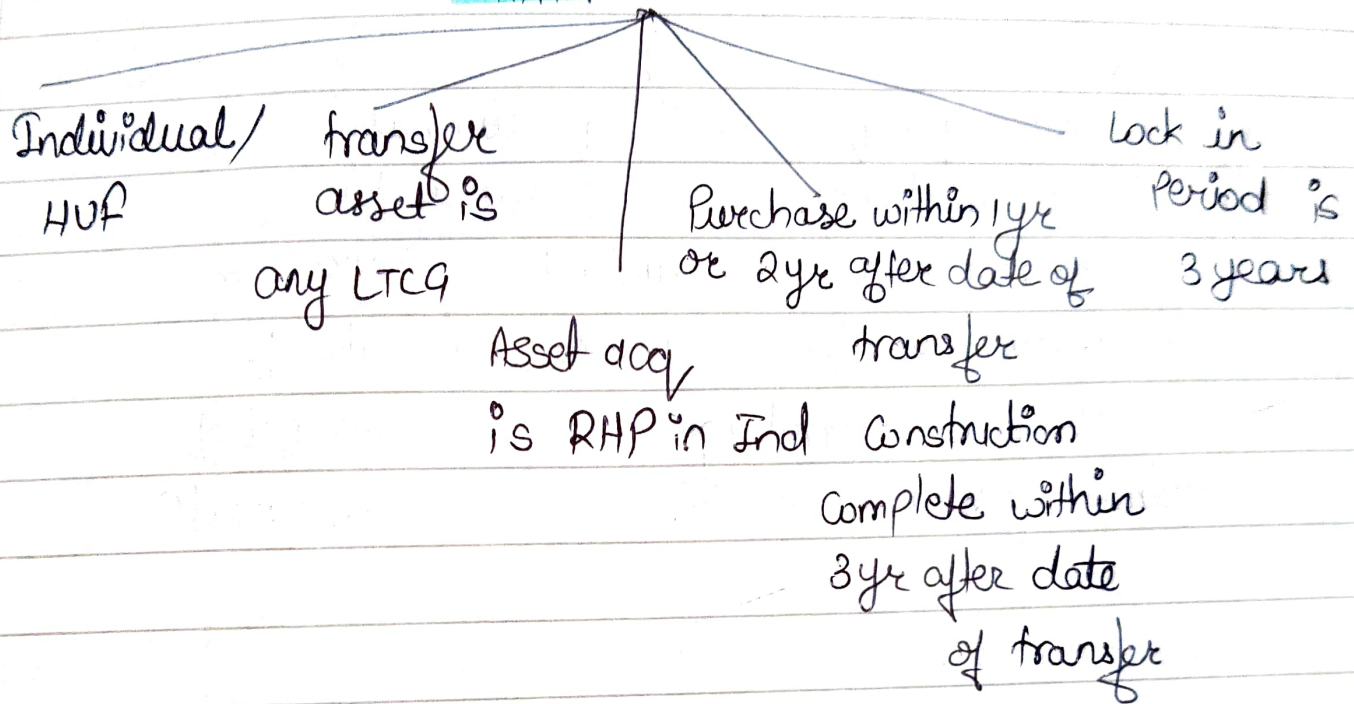 Individual/
HUF
transfer
asset is
any LTCG
Asset acq
is RHP in Ind
Purchase within 1yr
or 2yr after date of
transfer
Construction
Complete within
3yr after date
of transfer
Lock in
Period is
3 years